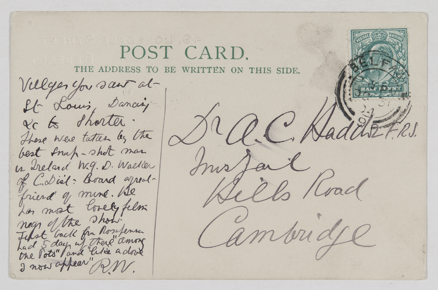 POST CARD.
THE ADDRESS TO BE WRITTEN ON THIS SIDE.
BELFAST
Villages you saw at
St Louis, Dancing
&c &c Shorter.
These were taken by the
best snap-shot man
in Ireland W.J. D. Walker
of C. Dist: Board a great
friend of mine. He
has most lovely film
of the show
First back from
had 5 days up there "among
the Pots" and like a dove
I now appear" R.W.
Dr A.C. Haddon F.R.S.
Inisfail
Hills Road
Cambridge